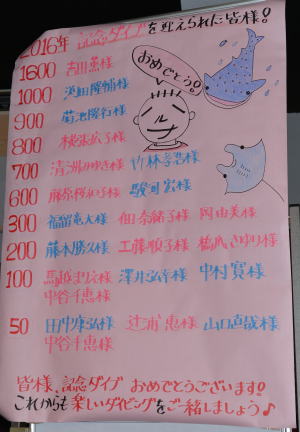 2016年 記念ダイブを迎えられた皆様!
おめでとう!
1600 吉川薫様
1000 浜田隆輔様
900 菊池隆行様
800 様
700 清洲みゆき様 竹林孝浩様
600 藤原桜和子様 駿河宏様
300 福留竜大様 佃奈緒子様 岡由美様
200 藤本勝久様 工藤順子様 さゆり様
100 馬越まり衣様 澤井弘幸様 中村寛様
中谷千恵様
50 田中準弘様 辻浦恵様 山口直哉様
中谷千恵様
皆様、記念ダイブ おめでとうございます!
これからも楽しいダイビングをご一緒しましょう♪